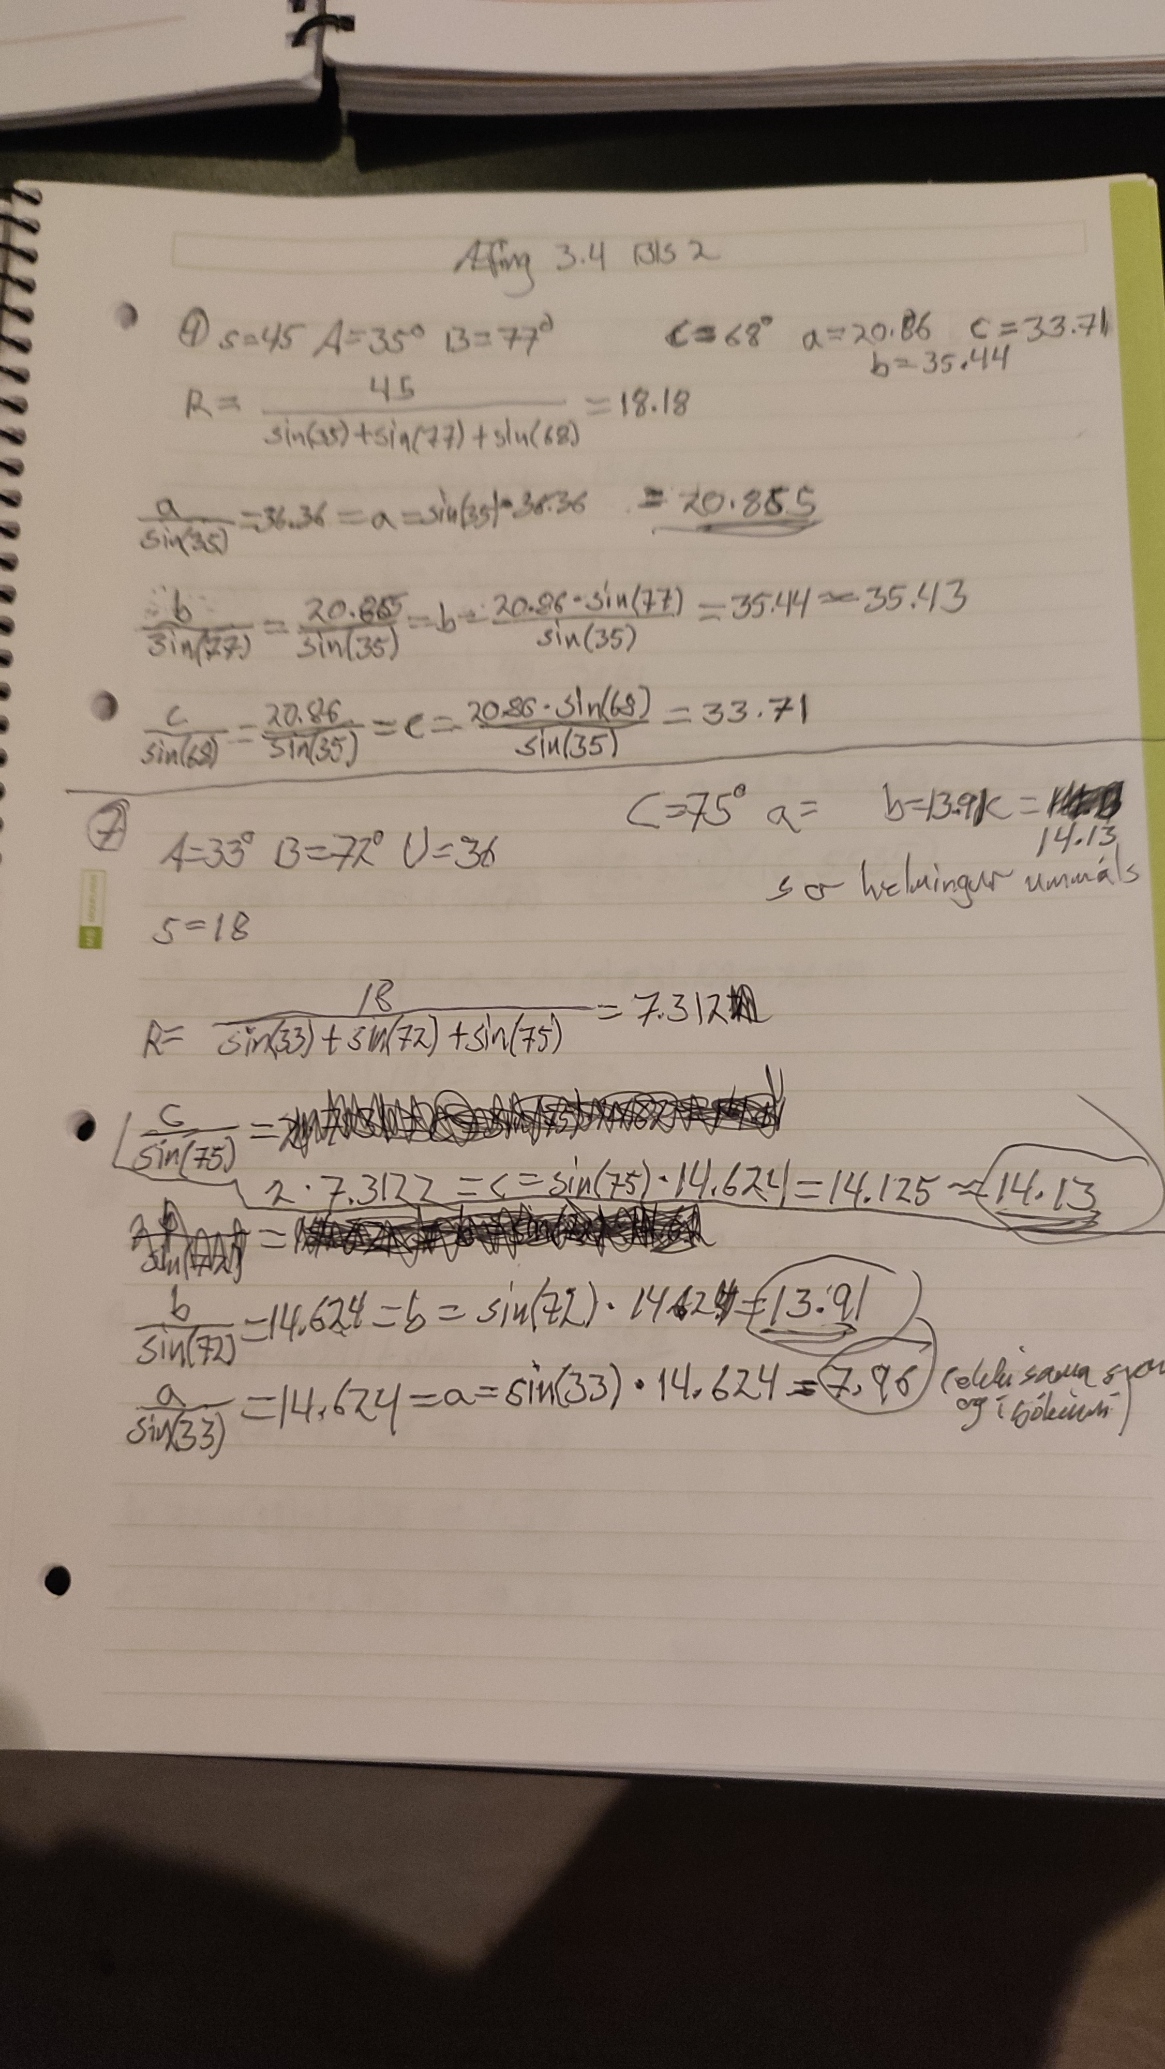 Æfing 3.4 Bls 2
④ s=45 A=35° B=77° C=68° a=20.86 c=33.71
b=35.44
R= 45 / sin(35)+sin(77)+sin(68) =18.18
a / sin(35) =36.36 = a=sin(35)·36.36 = 20.855
b / sin(77) = 20.865 / sin(35) = b= 20.86·sin(77) / sin(35) =35.44≈35.43
c / sin(68) = 20.86 / sin(35) = c= 20.86·sin(68) / sin(35) = 33.71
⑦ C=75° a= b=13.91 c=
14.13
A=33° B=72° U=36
s er helmingur ummáls
s=18
R= 18 / sin(33)+sin(72)+sin(75) = 7.312
c / sin(75) =
2·7.3122 = c= sin(75)·14.624=14.125≈14.13
b / sin(72) =14.624=b= sin(72)·14.624=13.91
a / sin(33) =14.624=a=sin(33)·14.624=7.96 (ekki sama svar
og í bókinni)